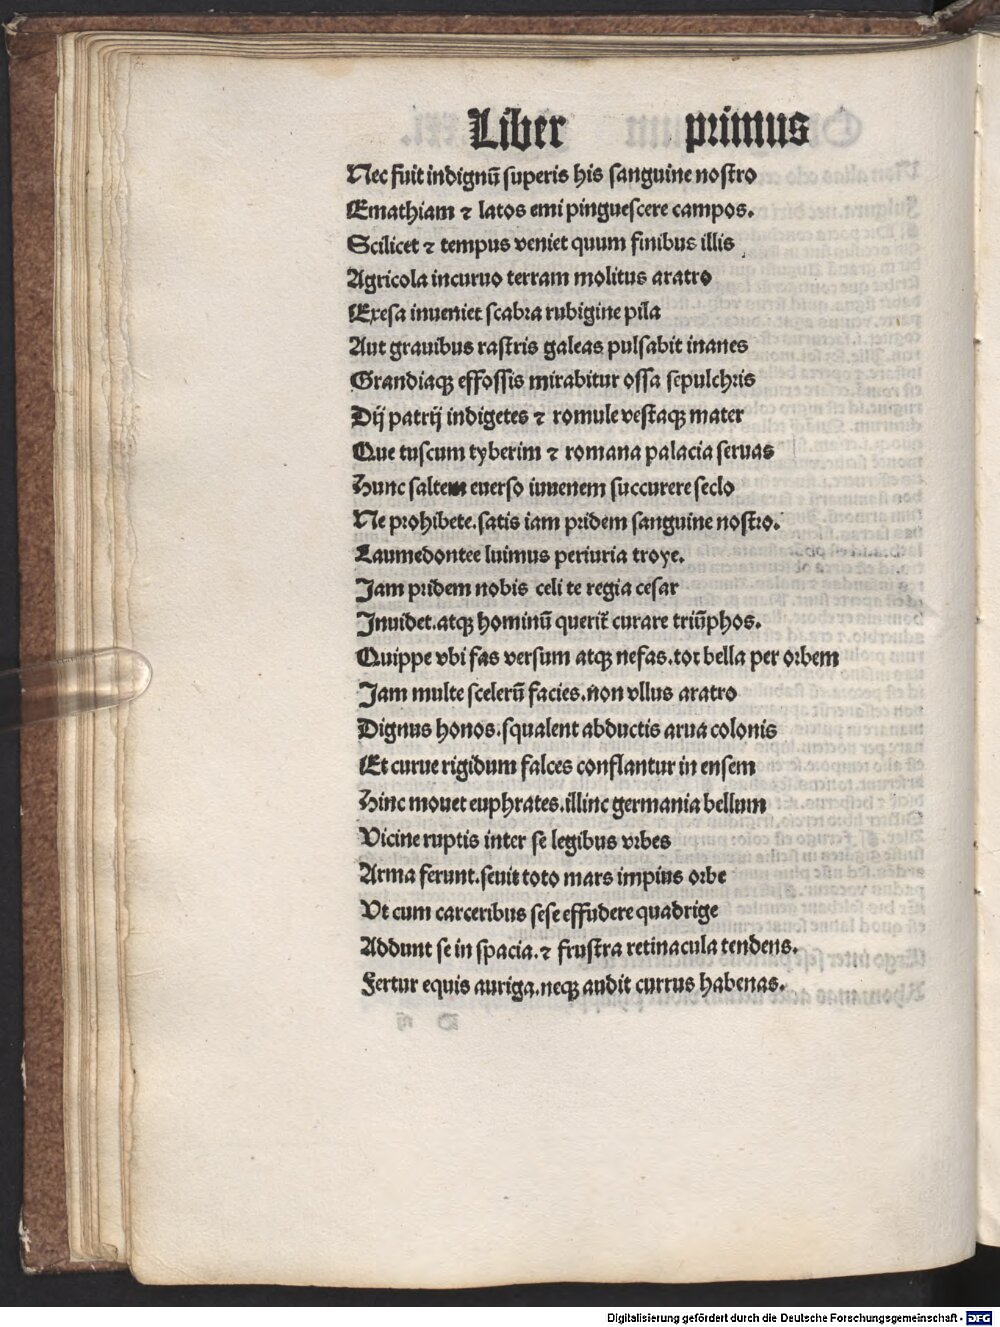 Liber primus
Nec fuit indignū superis his sanguine nostro
Emathiam ⁊ latos emi pinguescere campos.
Scilicet ⁊ tempus veniet quum finibus illis
Agricola incuruo terram molitus aratro
Exesa inueniet scabra rubigine pila
Aut grauibus rastris galeas pulsabit inanes
Grandiaqꝫ effossis mirabitur ossa sepulchris
Dij patrij indigetes ⁊ romule vestaqꝫ mater
Que tuscum tyberim ⁊ romana palacia seruas
Hunc saltem euerso iuuenem succurere seclo
Ne prohibete.satis iam pridem sanguine nostro.
Laumedontee luimus periuria troye.
Jam pridem nobis celi te regia cesar
Inuidet.atqꝫ hominū querit̄ curare triūphos.
Quippe vbi fas versum atqꝫ nefas.tot bella per orbem
Jam multe scelerū facies.non vllus aratro
Dignus honos.squalent abductis arua colonis
Et curue rigidum falces conflantur in ensem
Hinc mouet euphrates.illinc germania bellum
Vicine ruptis inter se legibus vrbes
Arma ferunt.seuit toto mars impius orbe
Vt cum carceribus sese effudere quadrige
Addunt se in spacia.⁊ frustra retinacula tendens.
Fertur equis auriga.neqꝫ audit currus habenas.
Digitalisierung gefördert durch die Deutsche Forschungsgemeinschaft - DFG